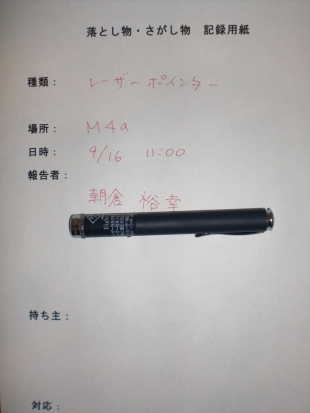 落とし物・さがし物 記録用紙
種類： レーザーポインター
場所： M4a
日時： 9/16 11:00
報告者：
朝倉 裕幸
持ち主：
対応：